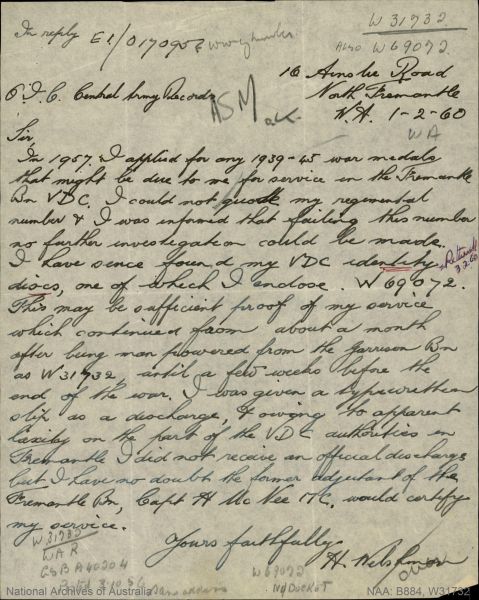 W 31732
In reply E1/0170957 wrong number
Also W69072
16 Ainslie Road
O.I.C. Central Army Records
North Fremantle
ASM
W.A. 1-2-60
WA
Sir
In 1957 I applied for any 1939-45 war medals
that might be due to me for service in the Fremantle
Bn VDC. I could not quote my regimental
number & I was informed that failing this number
no further investigation could be made.
I have sence found my VDC identity
Returned 3.2.60
discs, one of which I enclose. W69072.
This may be sufficient proof of my service
which continued from about a month
after being man powered from the Garrison Bn
as W31732, until a few weeks before the
end of the war. I was given a typewritten
slip as a discharge, & owing to apparent
laxity on the part of the VDC authorities in
Fremantle I did not receive an official discharge
but I have no doubt the former adjutant of the
Fremantle Bn, Capt H McKee M.C. would certify
my service.
Yours faithfully
H. Welshman
W31732
WAR
W69072
No Docket
National Archives of Australia
NAA: B884, W31732